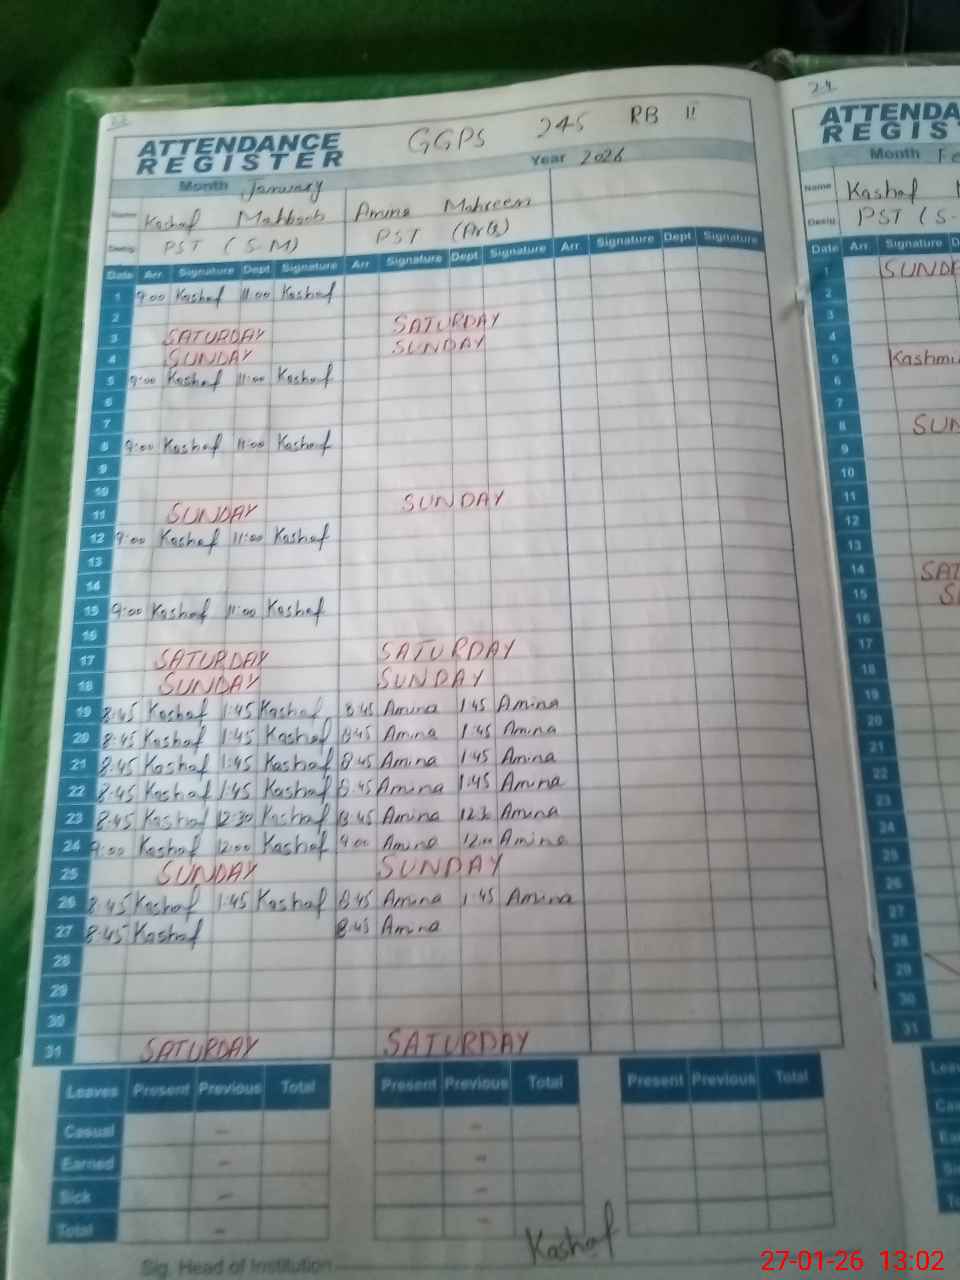 GGPS 245 RB II
ATTENDANCE
REGISTER
Year 2026
Month January
Name Kashaf Mahboob Amina Mahreen
Desig PST (S-M) PST (Ar)
Date Arr. Signature Dept Signature Arr Signature Dept Signature Arr. Signature Dept Signature
1 9:00 Kashaf 11:00 Kashaf
2
3 SATURDAY SATURDAY
4 SUNDAY SUNDAY
5 9:00 Kashaf 11:00 Kashaf
6
7
8 9:00 Kashaf 11:00 Kashaf
9
10
11 SUNDAY SUNDAY
12 9:00 Kashaf 11:00 Kashaf
13
14
15 9:00 Kashaf 11:00 Kashaf
16
17 SATURDAY SATURDAY
18 SUNDAY SUNDAY
19 8:45 Kashaf 1:45 Kashaf 8:45 Amina 1:45 Amina
20 8:45 Kashaf 1:45 Kashaf 8:45 Amina 1:45 Amina
21 8:45 Kashaf 1:45 Kashaf 8:45 Amina 1:45 Amina
22 8:45 Kashaf 1:45 Kashaf 8:45 Amina 1:45 Amina
23 8:45 Kashaf 12:30 Kashaf 8:45 Amina 12:30 Amina
24 9:00 Kashaf 12:00 Kashaf 9:00 Amina 12:00 Amina
25 SUNDAY SUNDAY
26 8:45 Kashaf 1:45 Kashaf 8:45 Amina 1:45 Amina
27 8:45 Kashaf 8:45 Amina
28
29
30
31 SATURDAY SATURDAY
Leaves Present Previous Total Present Previous Total Present Previous Total
Casual - -
Earned - -
Sick - -
Total - -
Kashaf
Sig. Head of Institution
24
ATTENDA
REGIS
Month Fe
Name Kashaf
Desig. PST (S-
Date Arr. Signature D
1 SUNDA
2
3
4
5 Kashmi
6
7
8 SUN
9
10
11
12
13
14 SAT
15 S
16
17
18
19
20
21
22
23
24
25
26
27
28
29
30
31
Leav
Cas
Ear
Si
To
27-01-26 13:02